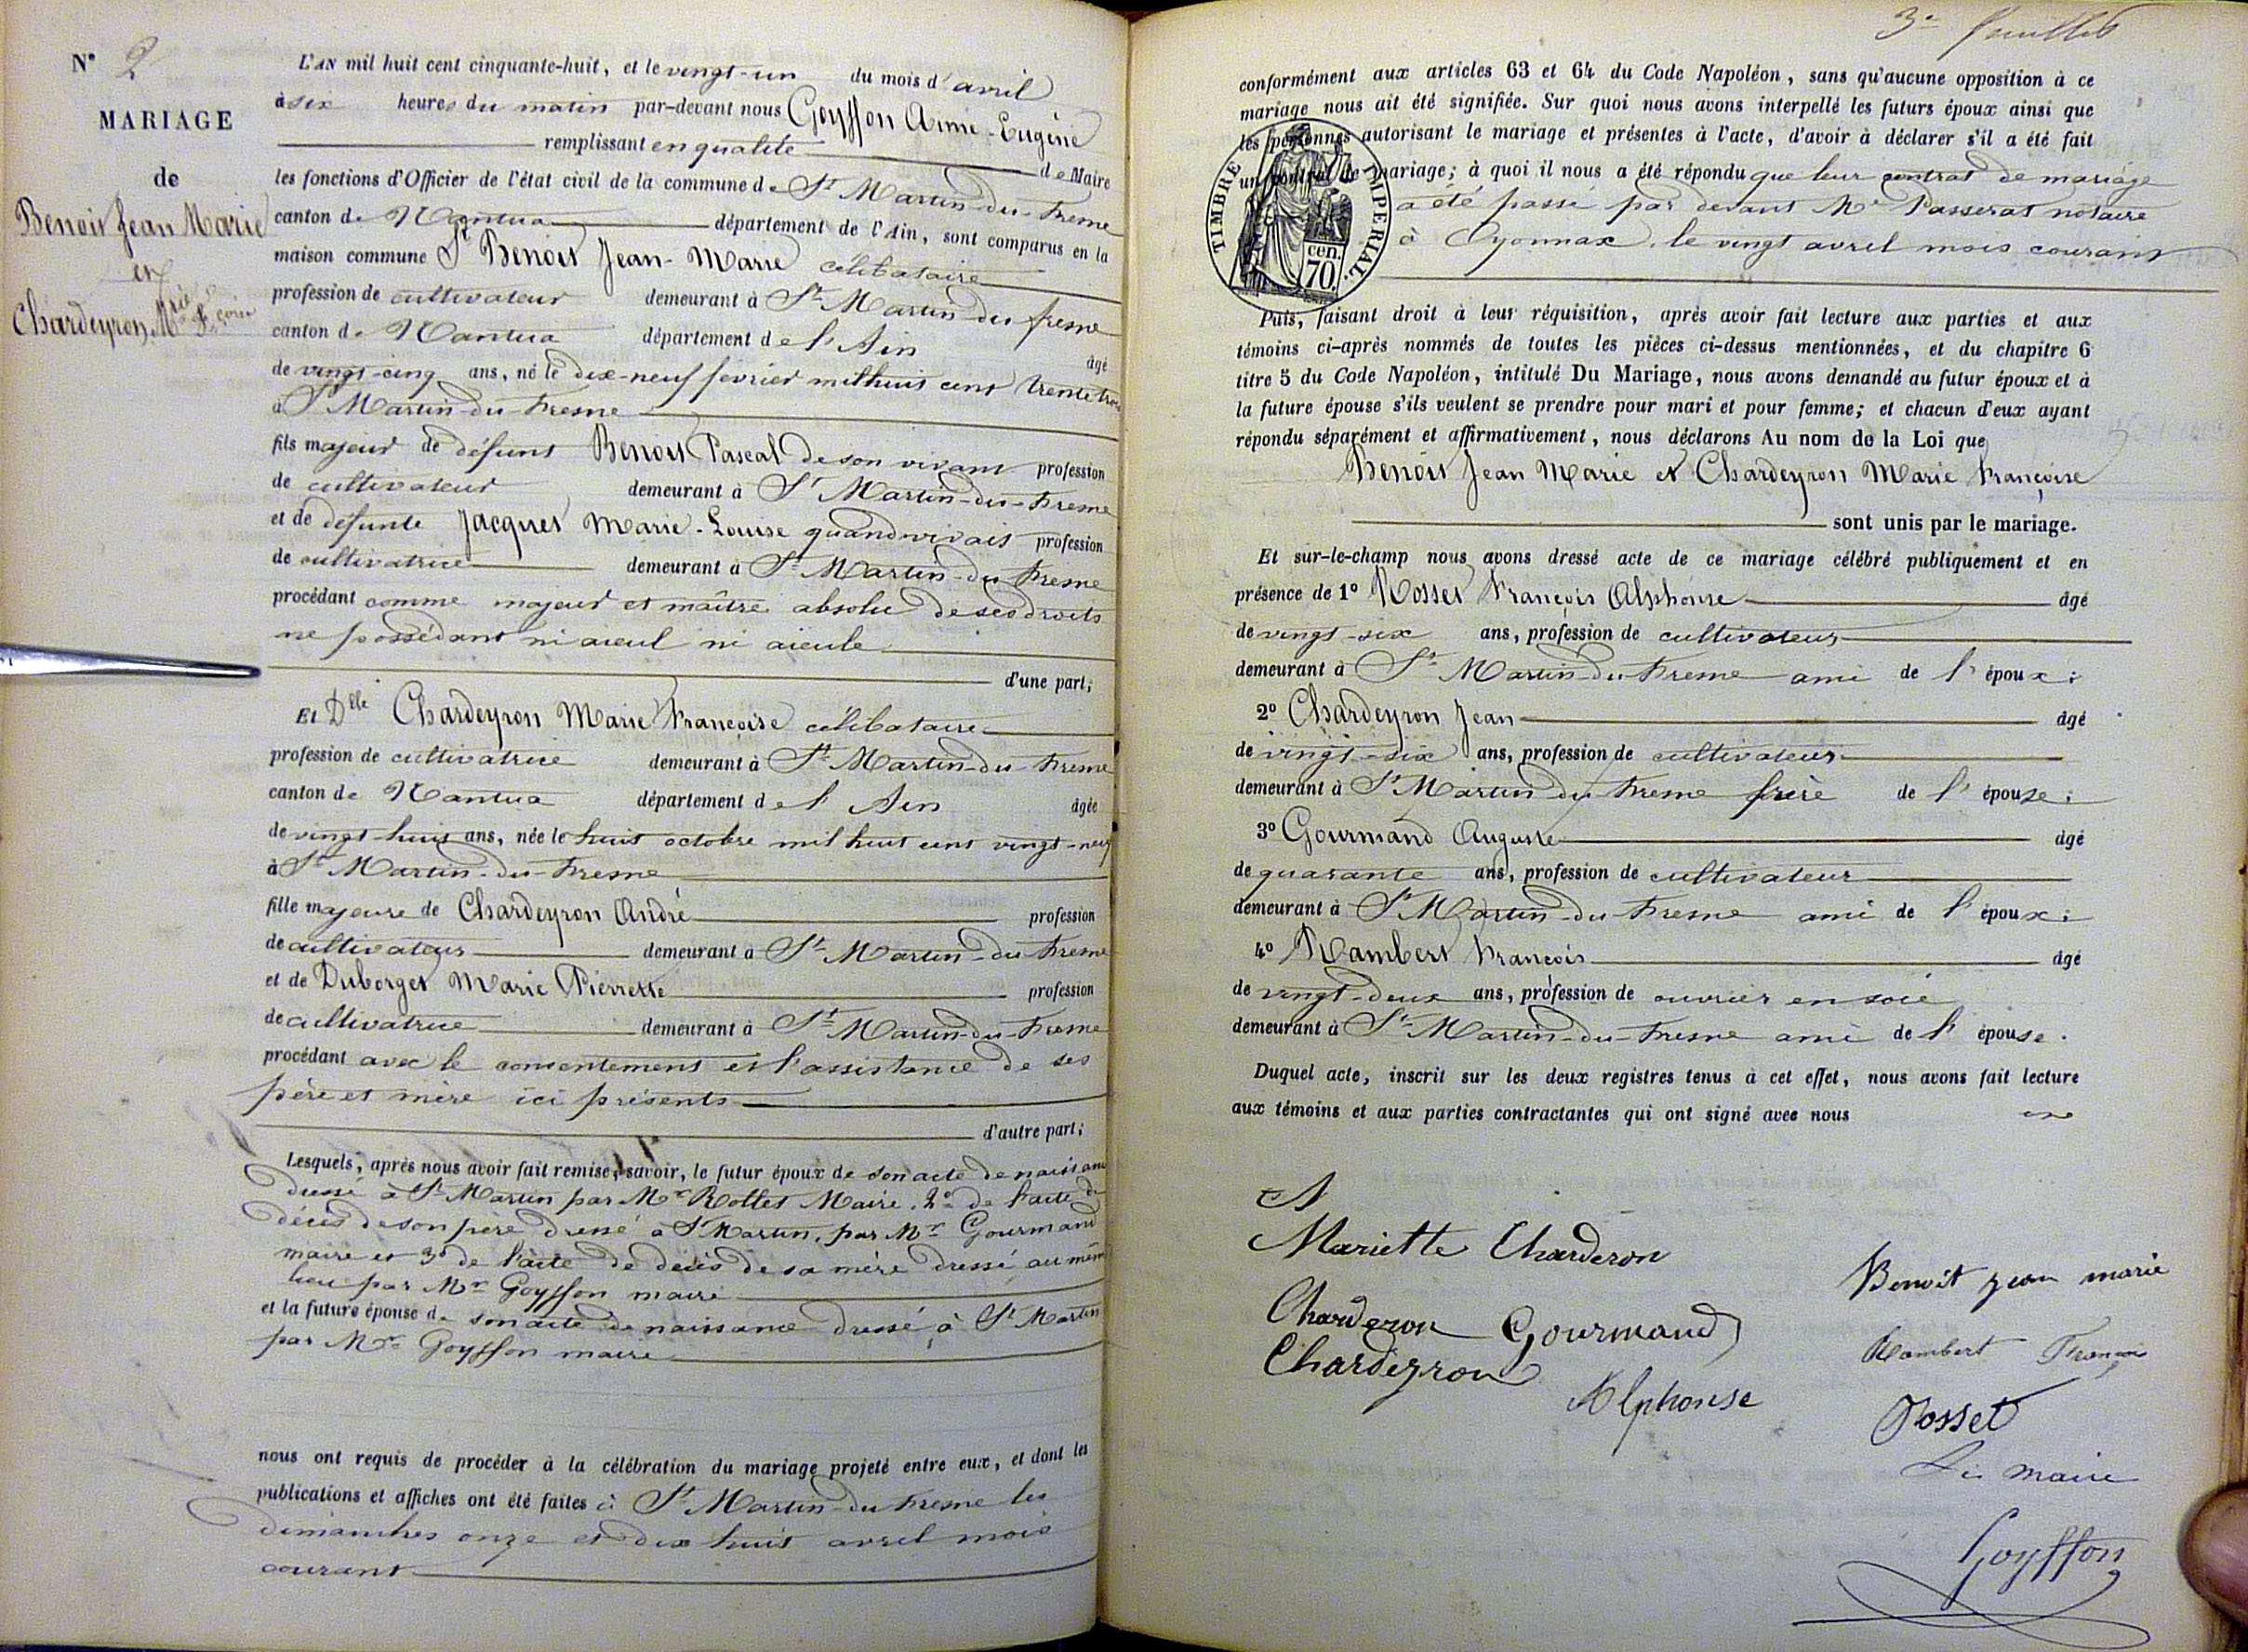 N° 2
MARIAGE
de
Benoit Jean Marie
et
Chardeyron Mrie Fcoise
L'AN mil huit cent cinquante-huit, et le vingt-un du mois d'avril
à six heures du matin par-devant nous Goyffon Aimé-Eugène
remplissant en qualité de Maire
les fonctions d'Officier de l'état civil de la commune de St Martin-du-Fresne
canton de Nantua département de l'Ain, sont comparus en la
maison commune Sr Benoit Jean-Marie célibataire
profession de cultivateur demeurant à St Martin du fresne
canton de Nantua département de l'Ain âgé
de vingt-cinq ans, né le dix-neuf février mil huit cent trente trois
à St Martin-du-Fresne
fils majeur de défunt Benoit Pascal de son vivant profession
de cultivateur demeurant à St Martin-du-Fresne
et de défunte Jacquet Marie-Louise quand vivait profession
de cultivatrice demeurant à St Martin-du-Fresne
procédant comme majeur et maître absolu de ses droits
ne possédant ni aieul ni aieule
d'une part;
Et Delle Chardeyron Marie Françoise célibataire
profession de cultivatrice demeurant à St Martin-du-Fresne
canton de Nantua département de l'Ain âgée
de vingt-huit ans, née le huit octobre mil huit cent vingt-neuf
à St Martin-du-Fresne
fille majeure de Chardeyron André profession
de cultivateur demeurant à St Martin-du-Fresne
et de Duborget Marie Pierrette profession
de cultivatrice demeurant à St Martin-du-Fresne
procédant avec le consentement et l'assistance de ses
père et mère ici présents
d'autre part;
Lesquels, après nous avoir fait remise, savoir, le futur époux de son acte de naissance
dressé à St Martin par Mr Rollet Maire, 2° de l'acte de
décès de son père dressé à St Martin, par Mr Gourmand
maire et 3° de l'acte de décès de sa mère dressé au même
lieu par Mr Goyffon maire
et la future épouse de son acte de naissance dressé à St Martin
par Mr Goyffon maire
nous ont requis de procéder à la célébration du mariage projeté entre eux, et dont les
publications et affiches ont été faites à St Martin-du-Fresne les
dimanches onze et dix huit avril mois
courant
3e feuillet
conformément aux articles 63 et 64 du Code Napoléon, sans qu'aucune opposition à ce
mariage nous ait été signifiée. Sur quoi nous avons interpellé les futurs époux ainsi que
les personnes autorisant le mariage et présentes à l'acte, d'avoir à déclarer s'il a été fait
un contrat de mariage; à quoi il nous a été répondu que leur contrat de mariage
a été passé par devant Me Passerat notaire
à Oyonnax, le vingt avril mois courant
TIMBRE IMPERIAL.
cen.
70.
Puis, faisant droit à leur réquisition, après avoir fait lecture aux parties et aux
témoins ci-après nommés de toutes les pièces ci-dessus mentionnées, et du chapitre 6
titre 5 du Code Napoléon, intitulé Du Mariage, nous avons demandé au futur époux et à
la future épouse s'ils veulent se prendre pour mari et pour femme; et chacun d'eux ayant
répondu séparément et affirmativement, nous déclarons Au nom de la Loi que
Benoit Jean Marie et Chardeyron Marie Françoise
sont unis par le mariage.
Et sur-le-champ nous avons dressé acte de ce mariage célébré publiquement et en
présence de 1° Rosset François Alphonse âgé
de vingt-six ans, profession de cultivateur
demeurant à St Martin-du-Fresne ami de l'époux;
2° Chardeyron Jean âgé
de vingt-six ans, profession de cultivateur
demeurant à St Martin du Fresne frère de l'épouse;
3° Gourmand Auguste âgé
de quarante ans, profession de cultivateur
demeurant à St Martin-du-Fresne ami de l'époux;
4° Rambert François âgé
de vingt-deux ans, profession de ouvrier en soie
demeurant à St Martin-du-Fresne ami de l'épouse.
Duquel acte, inscrit sur les deux registres tenus à cet effet, nous avons fait lecture
aux témoins et aux parties contractantes qui ont signé avec nous
Mariette Charderon
Benoit jean marie
Charderon Gourmand
Rambert François
Chardeyron
Alphonse
Rosset
Le maire
Goyffon